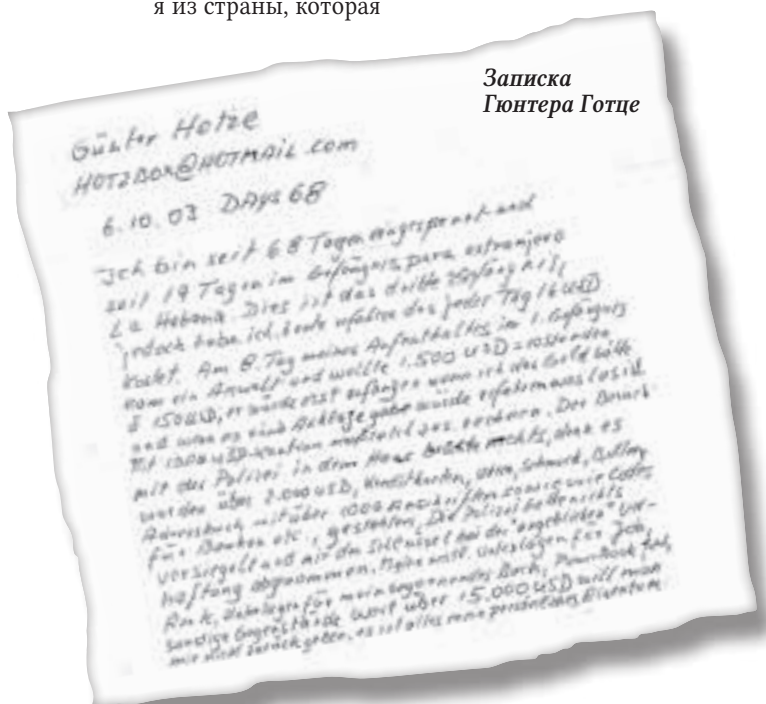 я из страны, которая
Записка
Гюнтера Готце
Günter Hotze
HOTZBOX@HOTMAIL.com
6.10.03 DAYS 68
Ich bin seit 68 Tagen eingesperrt und
seit 19 Tagen im Gefängnis para estranjero
La Habana. Dies ist das dritte Gefängnis,
jedoch habe ich heute erfahren das jeder Tag 16 USD
kostet. Am 8. Tag meines Aufenthaltes im 1. Gefängnis
kam ein Anwalt und wollte 1.500 USD
150 USD, er würde erst anfangen wenn ich das Geld hätte
und wenn es eine Anklage gäbe würde erfahren was los ist
mit der Polizei in dem Haus brachte nichts, denn es
wurden über 2.000 USD, Kreditkarten, Uhren, Schmuck,
Adressbuch mit über 1000 Anschriften sowie Codes
für Banken etc., gestohlen. Die Polizei hatte nichts
versiegelt und mir den Schlüssel bei der "angeblichen" Ver-
haftung abgenommen. Meine Unterlagen für
Unterlagen für mein Buch, PowerBook
sonstige Gegenstände Wert über 15.000 USD will man
mir nicht zurückgeben, es ist alles mein persönliches Eigentum